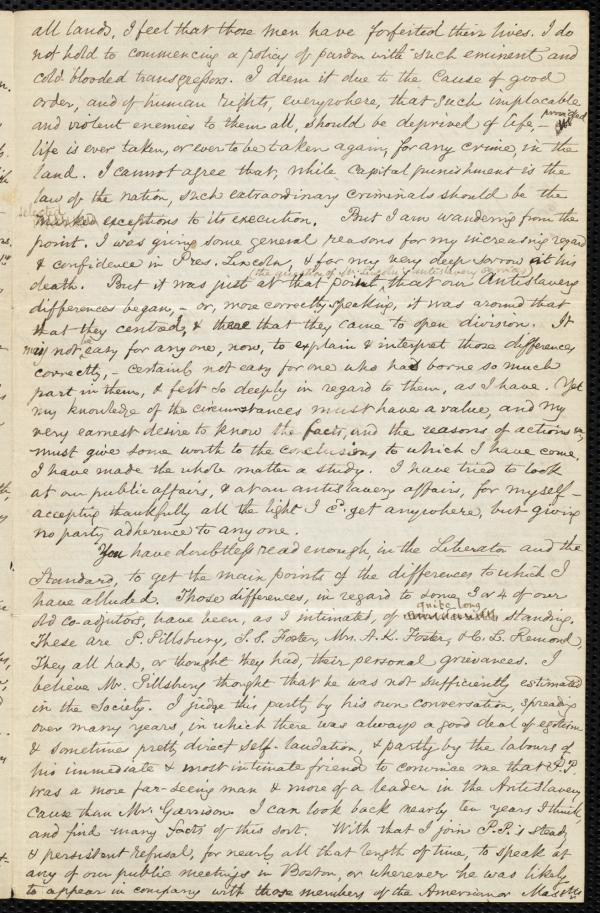 all lands, I feel that those men have forfeited their lives. I do
not hold to commencing a policy of pardon with such eminent and
cold blooded transgressors. I deem it due to the Cause of good
order, and of human rights, everywhere, that such implacable
and violent enemies to them all, should be deprived of life, – provided
life is ever taken, or ever to be taken again, for any crime, in the
land. I cannot agree that, while capital punishment is the
law of the nation, such extraordinary criminals should be the
selected
exceptions to its execution. But I am wandering from the
point. I was giving some general reasons for my increasing regard
& confidence in Pres. Lincoln, & for my very deep sorrow at his
the question of Mr. Lincoln's antislavery
death. But it was just at that point, that our Antislavery
differences began, – or, more correctly speaking, it was around that
that they centred, & that they came to open division. It
may not be easy for any one, now, to explain & interpret those differences
correctly, – certainly not easy for one who has borne so much
part in them, & felt so deeply in regard to them, as I have. Yet
my knowledge of the circumstances must have a value, and my
very earnest desire to know the facts, and the reasons of actions &c,
must give some worth to the conclusions to which I have come.
I have made the whole matter a study. I have tried to look
at our public affairs, & at our antislavery affairs, for myself –
accepting thankfully all the light I cd. get anywhere, but giving
no party adherence to any one.
You have doubtless read enough, in the Liberator and the
Standard, to get the main points of the differences to which I
have alluded. Those differences, in regard to some 3 or 4 of our
quite long
old co-adjutors, have been, as I intimated, of standing.
These are P. Pillsbury, S. S. Foster, Mrs. A. K. Foster, & C. L. Remond,
They all had, or thought they had, their personal grievances. I
believe Mr. Pillsbury thought that he was not sufficiently estimated
in the Society. I judge this partly by his own conversation, spreading
over many years, in which there was always a good deal of egotism
& sometimes pretty direct self-laudation, & partly by the labours of
his immediate & most intimate friend to convince me that P. P.
was a more far-seeing man & more of a leader in the Antislavery
Cause than Mr. Garrison. I can look back nearly ten years I think,
and find many facts of this sort. With that I join P. P.'s steady
& persistent refusal, for nearly all that length of time, to speak at
any of our public meetings in Boston, or wherever he was likely
to appear in company with those members of the American or Mass